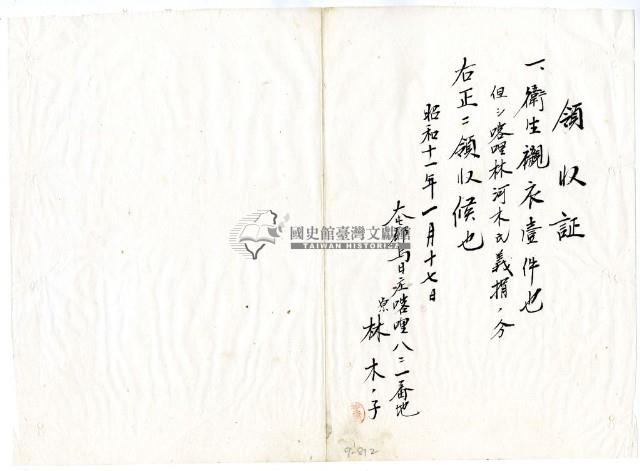 領收証
一、衛生襯衣壹件也
但シ喀哩林河木氏義捐ノ分
右正ニ領収候也
昭和十一年一月十七日
大屯郡烏日庄喀哩八二一番地
林木ノ子
國史館臺灣文獻館
TAIWAN HISTORICA
9-812